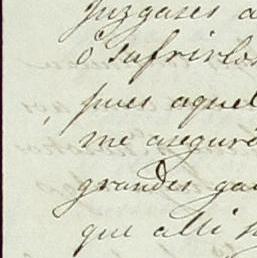 juzgases a
ó sufrirlos
pues aquel
me aseguró
grandes ga
que alli h